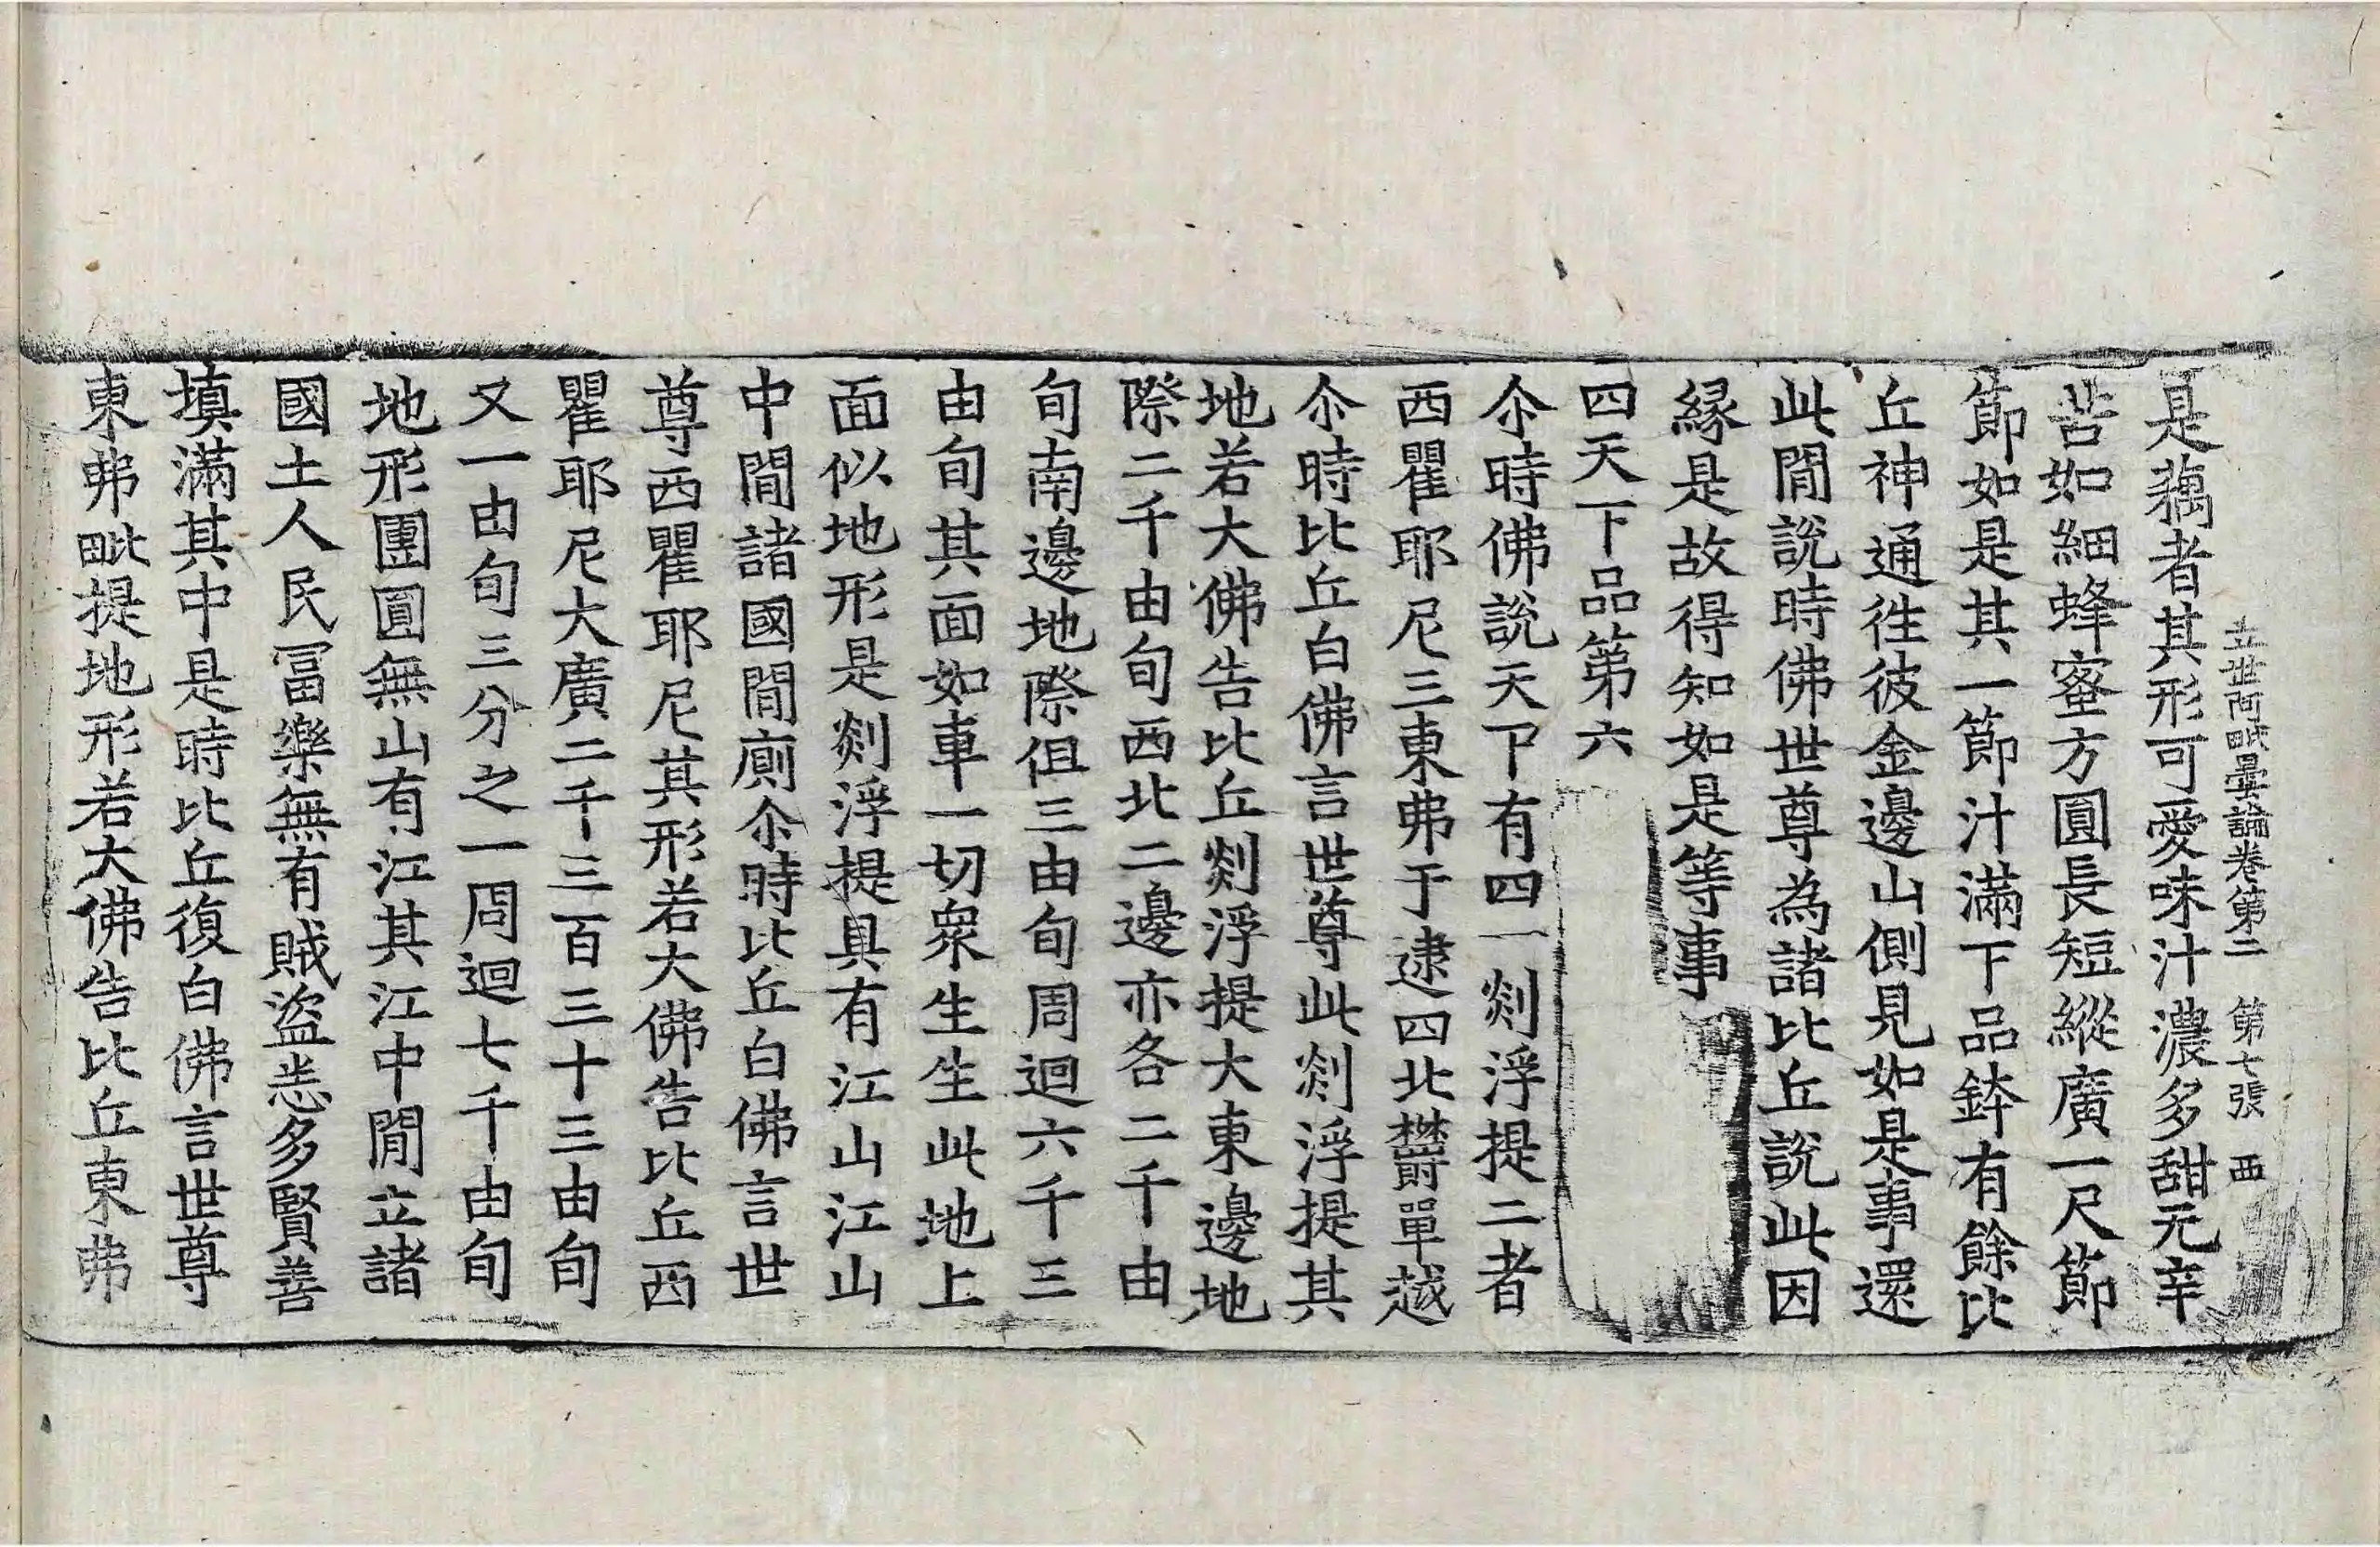 立世阿毗曇論卷第二 第七張 西
是藕者其形可愛味汁濃多甜无辛
苦如細蜂蜜方圓長短縱廣一尺節
節如是其一節汁滿下品鉢有餘比
丘神通徃彼金邊山側見如是事還
此間說時佛世尊為諸比丘說此因
緣是故得知如是等事
四天下品第六
尒時佛說天下有四一剡浮提二者
西瞿耶尼三東弗于逮四北欝單越
尒時比丘白佛言世尊此剡浮提其
地若大佛告比丘剡浮提大東邊地
際二千由旬西北二邊亦各二千由
旬南邊地際但三由旬周迴六千三
由旬其面如車一切衆生生此地上
面似地形是剡浮提具有江山江山
中間諸國間廁尒時比丘白佛言世
尊西瞿耶尼其形若大佛告比丘西
瞿耶尼大廣二千三百三十三由旬
又一由旬三分之一周迴七千由旬
地形團圓無山有江其江中間立諸
國土人民冨樂無有賊盜悉多賢善
填滿其中是時比丘復白佛言世尊
東弗毗提地形若大佛告比丘東弗